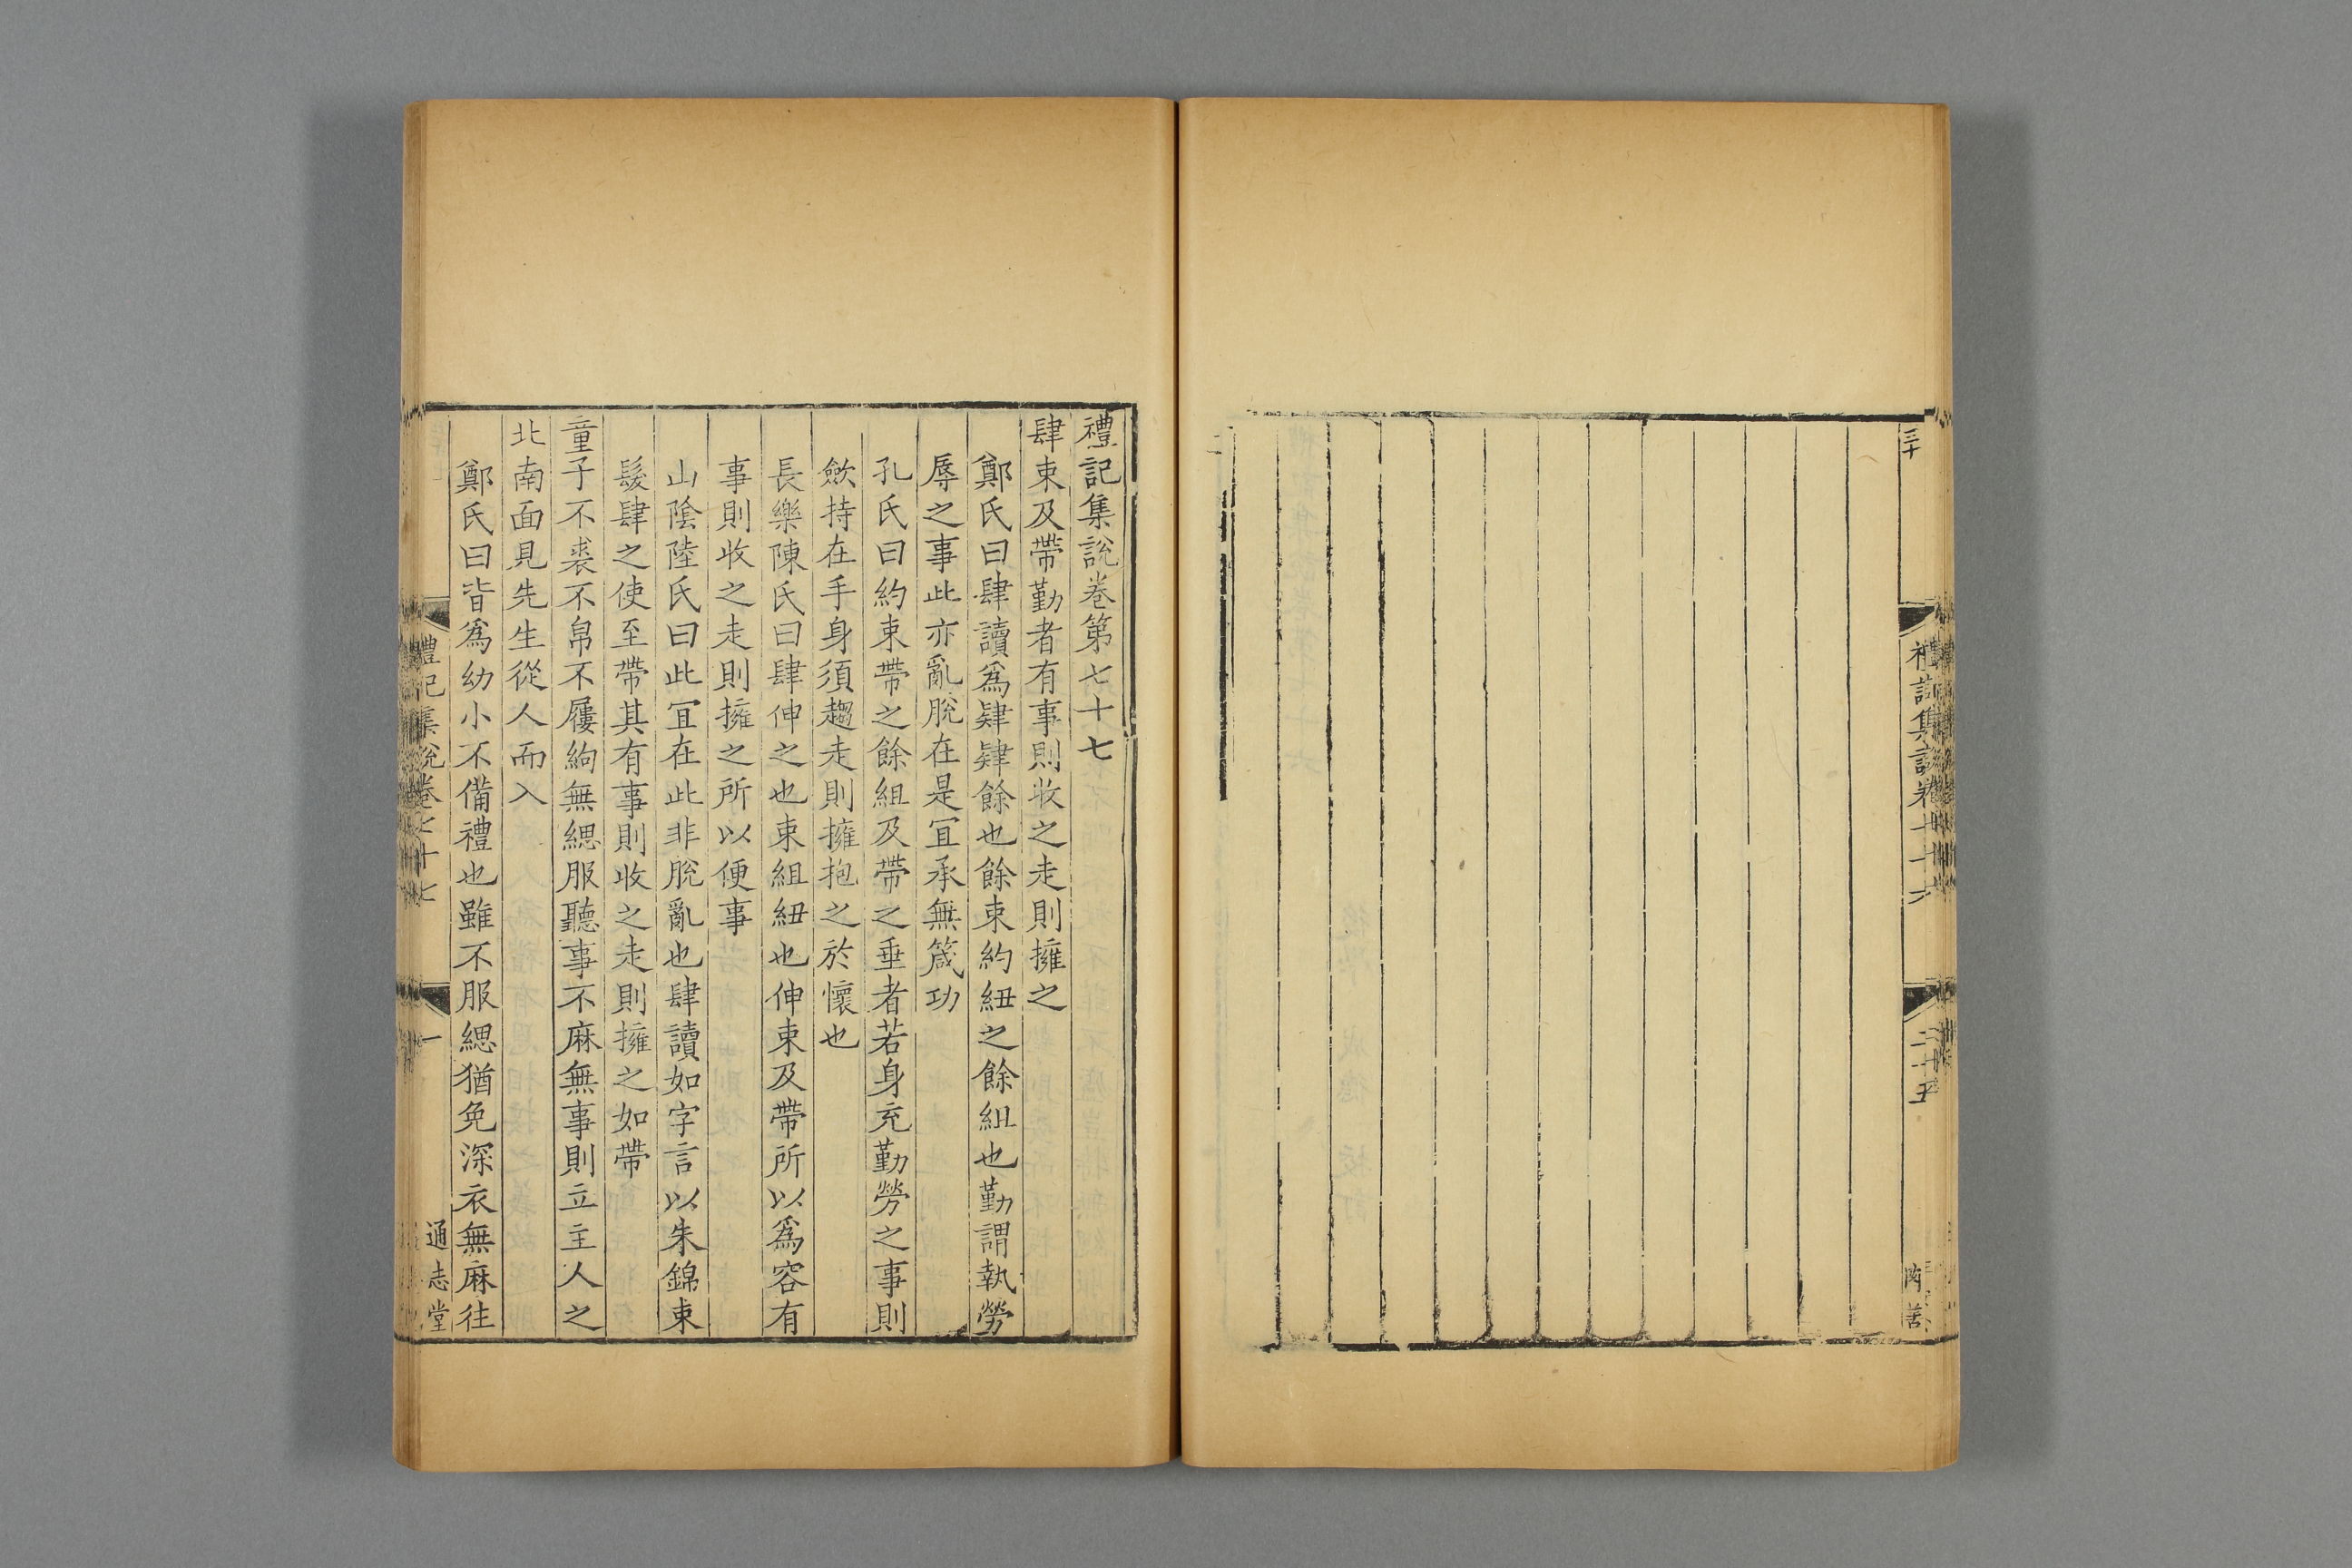 三十
禮記集說卷七十六
二十五
禮記集說卷第七十七
肆束及帶勤者有事則收之走則擁之
鄭氏曰肆讀爲肄肄餘也餘束約紐之餘組也勤謂執勞
辱之事此亦亂脫在是冝承無箴功
孔氏曰約束帶之餘組及帶之垂者若身充勤勞之事則
斂持在手身須趨走則擁抱之於懷也
長樂陳氏曰肆伸之也束組紐也伸束及帶所以爲容有
事則收之走則擁之所以便事
山陰陸氏曰此冝在此非脫亂也肆讀如字言以朱錦束
髮肆之使至帶其有事則收之走則擁之如帶
童子不裘不帛不屨絇無緦服聽事不麻無事則立主人之
北南面見先生從人而入
鄭氏曰皆爲幼小不備禮也雖不服緦猶免深衣無麻往
禮記集說卷七十七
一
通志堂